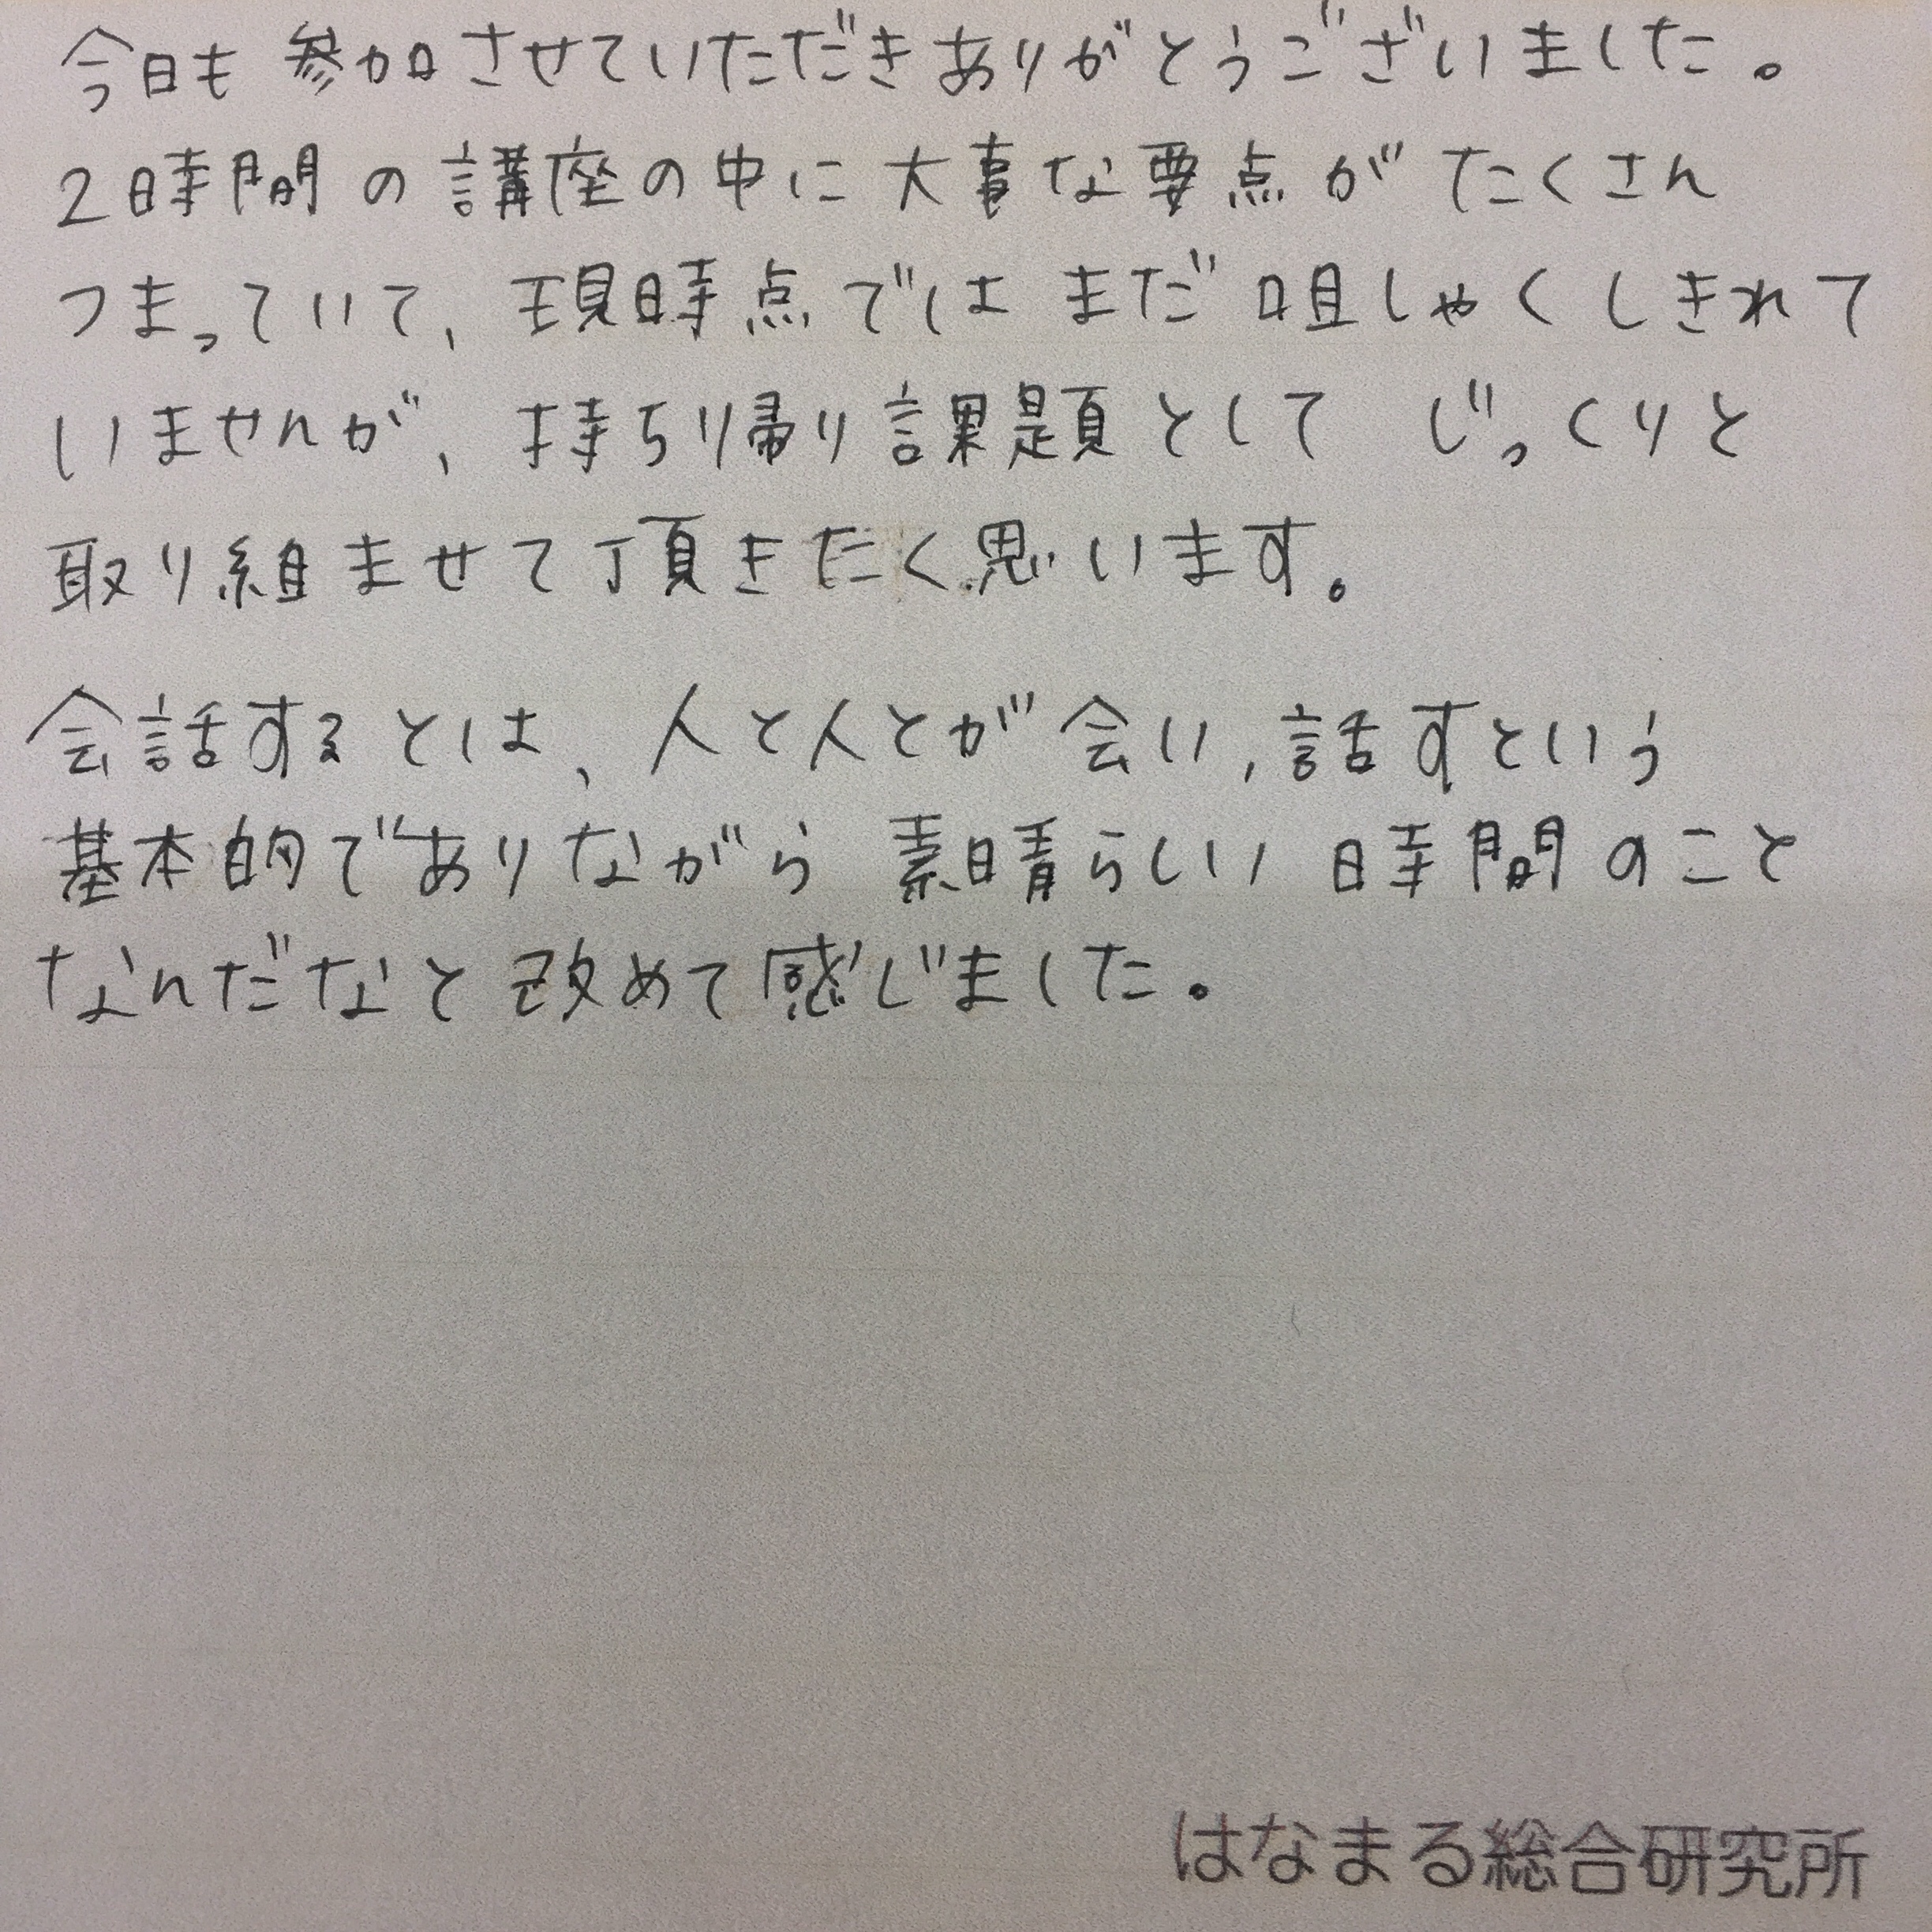 今日も参加させていただきありがとうございました。
2時間の講座の中に大事な要点がたくさん
つまっていて、現時点ではまだ咀しゃくしきれて
いませんが、持ち帰り課題としてじっくりと
取り組ませて頂きたく思います。
会話するとは、人と人とが会い、話すという
基本的でありながら素晴らしい時間のこと
なんだなと改めて感じました。
はなまる総合研究所